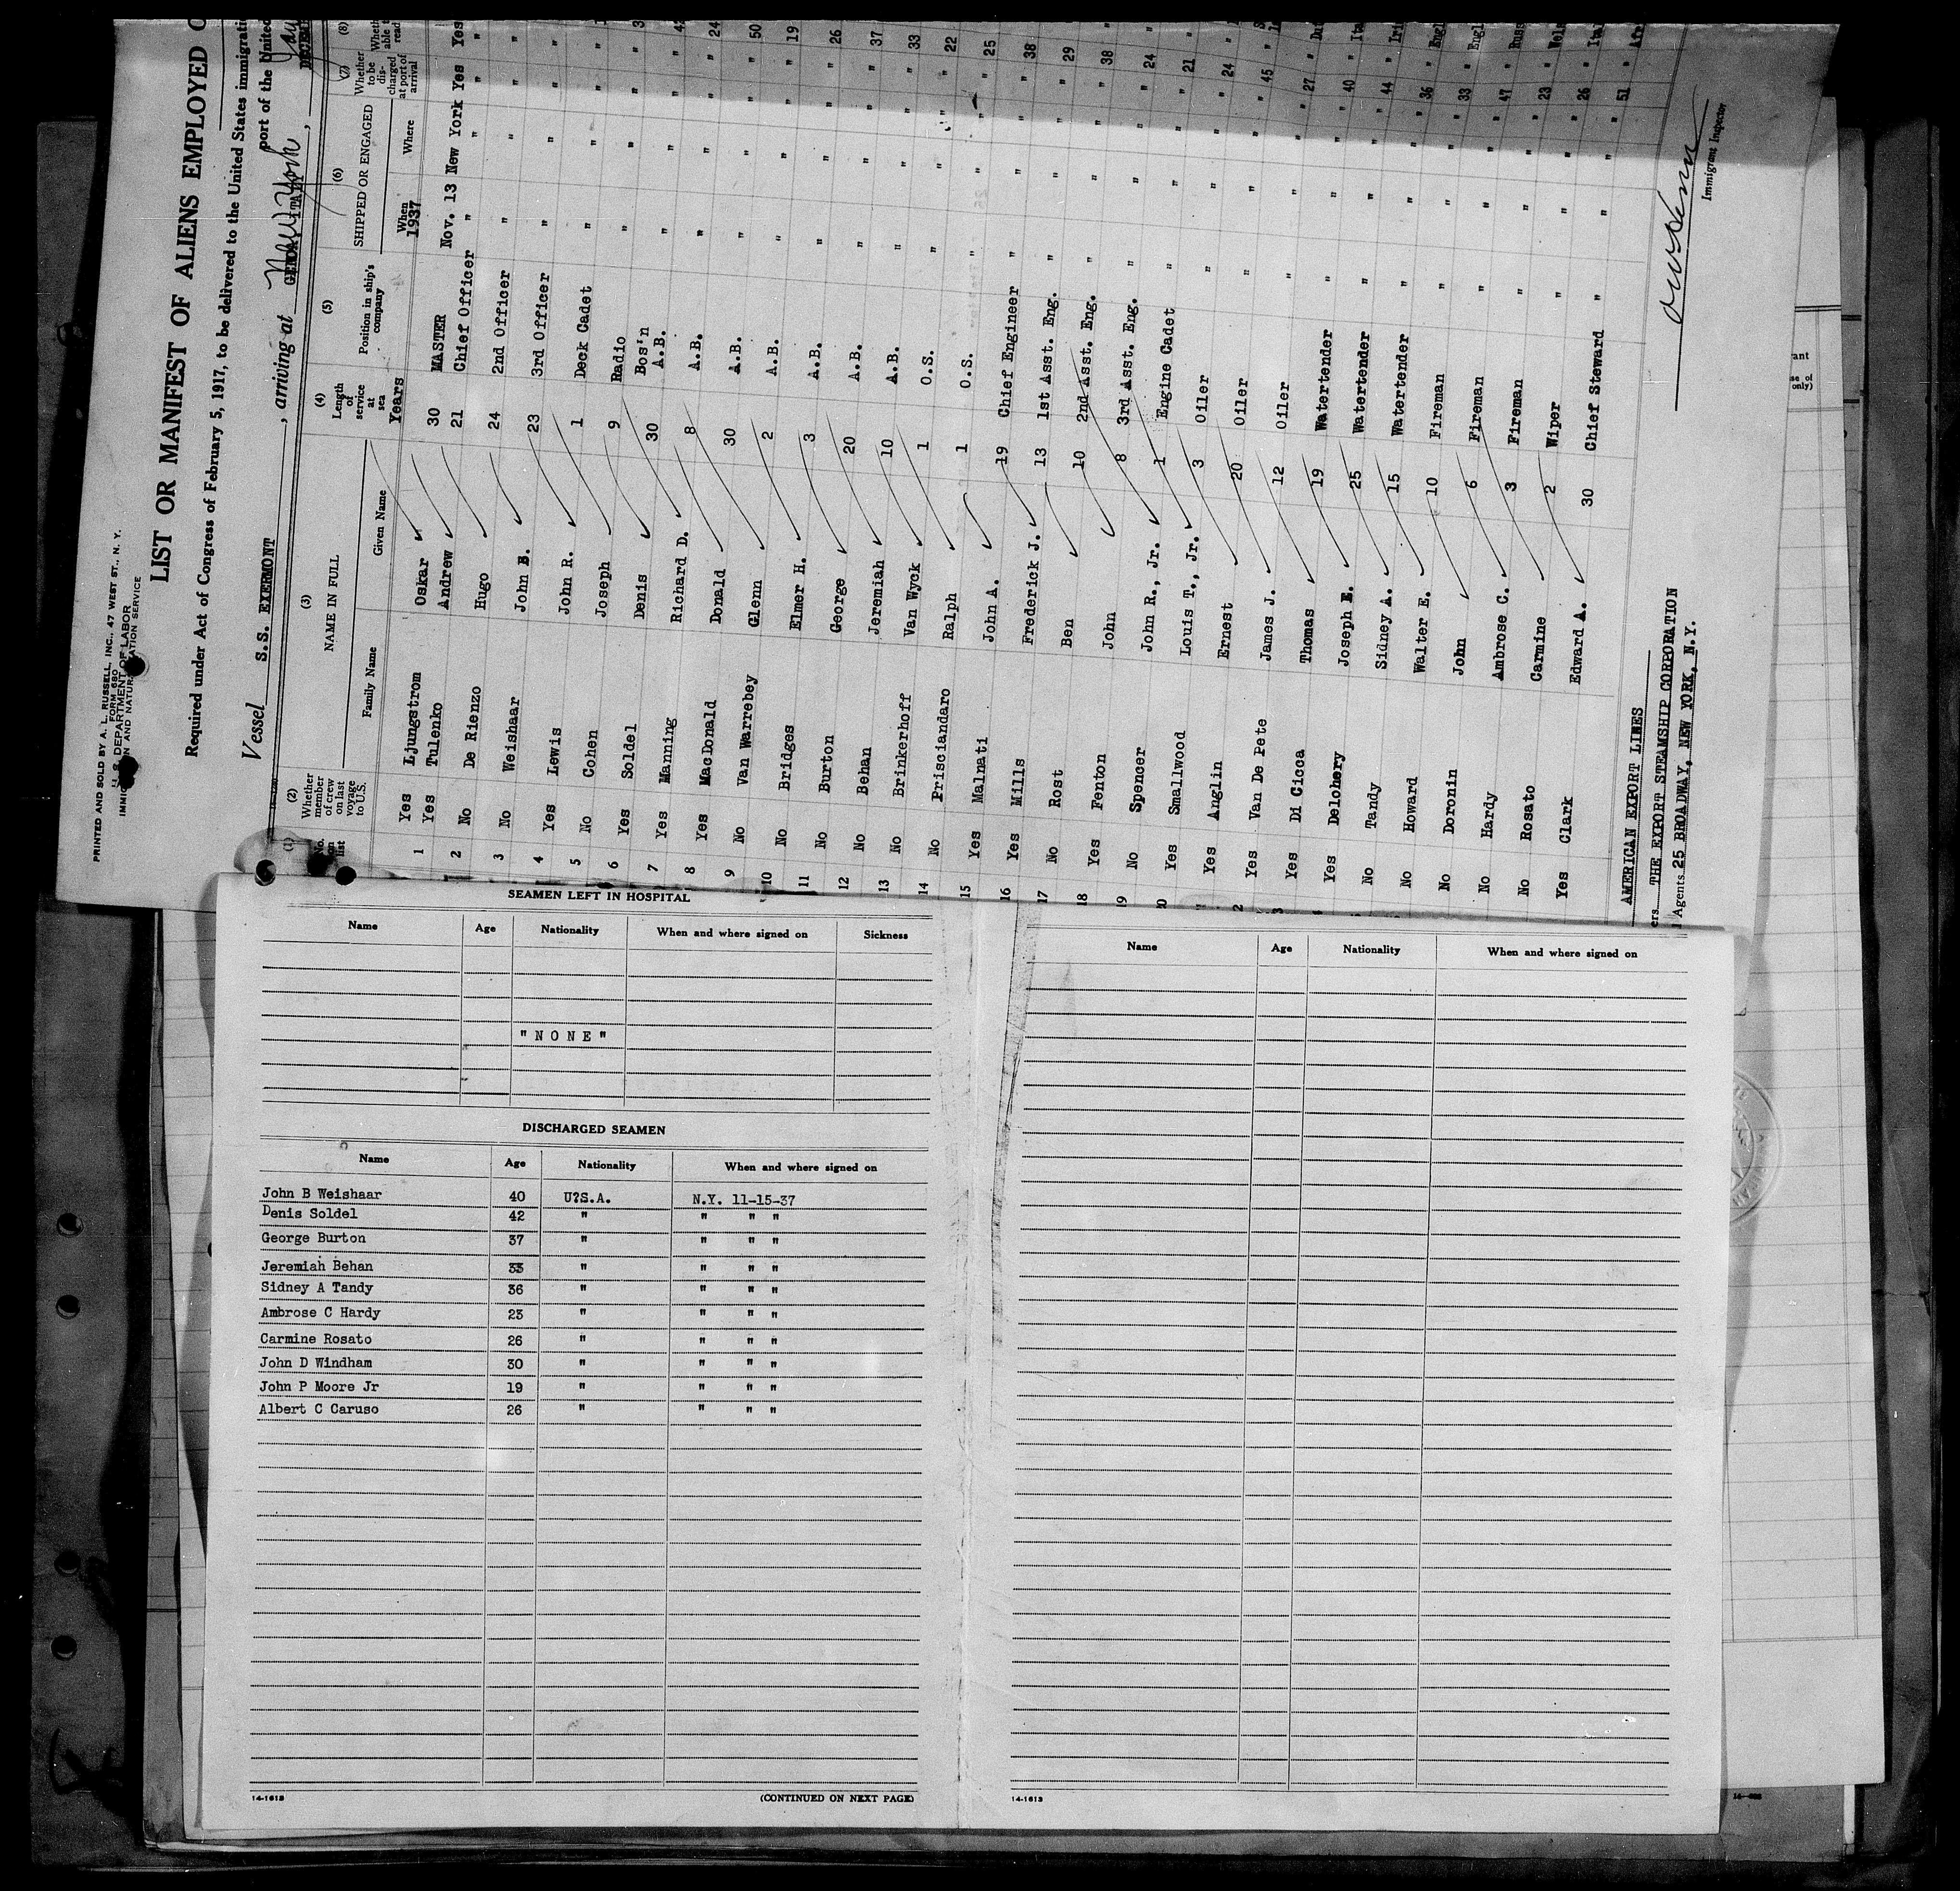 PRINTED AND SOLD BY A. L. RUSSELL, INC., 47 WEST ST., N. Y.
FORM 680
U. S. DEPARTMENT OF LABOR
LIST OR MANIFEST OF ALIENS EMPLOYED O
Required under Act of Congress of February 5, 1917, to be delivered to the United States immigrati
port of the United
Vessel S.S. EXERMONT, arriving at New York,
(1) No. on list (2) Whether member of crew on last voyage to U.S. (3) NAME IN FULL Family Name Given Name (4) Length of service at sea Years (5) Position in ship's company (6) SHIPPED OR ENGAGED When 1937 Where (7) Whether to be discharged at port of arrival (8) Whether able t read
Yes Ljungstrom Oskar 30 MASTER Nov. 13 New York Yes Yes
1 Yes Tulenko Andrew 21 Chief Officer " " " "
2 No De Rienzo Hugo 24 2nd Officer " " " "
3 No Weishaar John B. 23 3rd Officer " " " "
4 Yes Lewis John R. 1 Deck Cadet " " " "
5 No Cohen Joseph 9 Radio " " " "
6 Yes Soldel Denis 30 Bos'n A.B. " " " " 42
7 Yes Manning Richard D. 8 A.B. " " " " 24
8 Yes MacDonald Donald 30 A.B. " " " " 50
9 No Van Warrebey Glenn 2 A.B. " " " " 19
10 No Bridges Elmer H. 3 A.B. " " " " 26
11 No Burton George 20 A.B. " " " " 37
12 No Behan Jeremiah 10 A.B. " " " " 33
13 No Brinkerhoff Van Wyck 1 O.S. " " " " 22
14 No Prisciandaro Ralph 1 O.S. " " " " 25
15 Yes Malnati John A. 19 Chief Engineer " " " " 38
16 Yes Mills Frederick J. 13 1st Asst. Eng. " " " " 29
17 No Rost Ben 10 2nd Asst. Eng. " " " " 38
18 Yes Fenton John 8 3rd Asst. Eng. " " " " 24
19 No Spencer John R., Jr. 1 Engine Cadet " " " " 21
20 Yes Smallwood Louis T., Jr. 3 Oiler " " " " 24
Yes Anglin Ernest 20 Oiler " " " " 45
Yes Van De Pete James J. 12 Oiler " " " " 27
Yes Di Cicca Thomas 19 Watertender " " " " 40
Yes Delohery Joseph E. 25 Watertender " " " " 44
No Tandy Sidney A. 15 Watertender " " " " 36
No Howard Walter E. 10 Fireman " " " " 33
No Doronin John 6 Fireman " " " " 47
No Hardy Ambrose C. 3 Fireman " " " " 23
No Rosato Carmine 2 Wiper " " " " 26
Yes Clark Edward A. 30 Chief Steward " " " " 51
AMERICAN EXPORT LINES
ers THE EXPORT STEAMSHIP CORPORATION
Agents 25 BROADWAY, NEW YORK, N.Y.
Immigrant Inspector
SEAMEN LEFT IN HOSPITAL
Name Age Nationality When and where signed on Sickness
"NONE"
DISCHARGED SEAMEN
Name Age Nationality When and where signed on
John B Weishaar 40 U?S.A. N.Y. 11-15-37
Denis Soldel 42 " " " "
George Burton 37 " " " "
Jeremiah Behan 33 " " " "
Sidney A Tandy 36 " " " "
Ambrose C Hardy 23 " " " "
Carmine Rosato 26 " " " "
John D Windham 30 " " " "
John P Moore Jr 19 " " " "
Albert C Caruso 26 " " " "
14-1613 (CONTINUED ON NEXT PAGE)
Name Age Nationality When and where signed on
14-1613